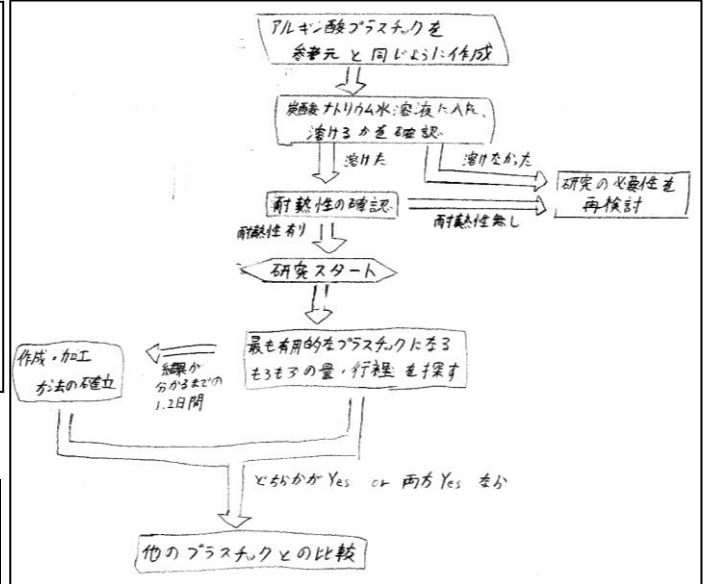 アルギン酸プラスチックを
参考元と同じように作成
炭酸ナトリウム水溶液に入れ、
溶けるかを確認
溶けた
溶けなかった
研究の必要性を
再検討
耐熱性の確認
耐熱性無し
耐熱性有り
研究スタート
最も有用的なプラスチックになる
もろもろの量・行程を探す
作成・加工
方法の確立
結果が
分かるまでの
1.2日間
どちらかがYes or 両方Yes なら
他のプラスチックとの比較